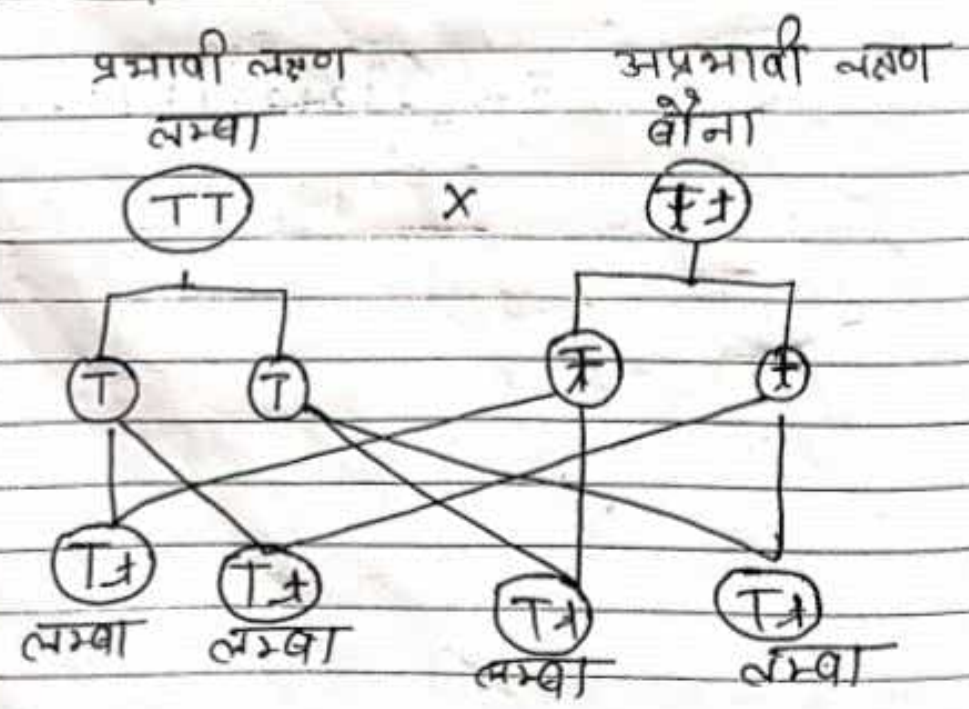 प्रभावी लक्षण अप्रभावी लक्षण
लम्बा बौना
TT x tt
T T t t
Tt Tt Tt Tt
लम्बा लम्बा लम्बा लम्बा